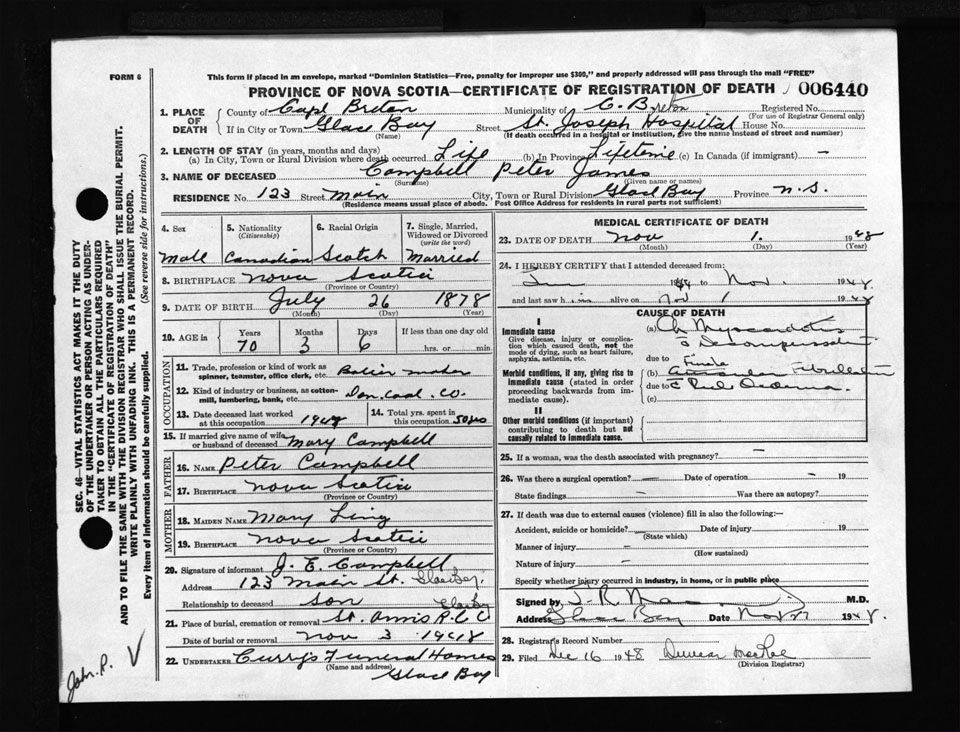 FORM 6
This form if placed in an envelope, marked "Dominion Statistics—Free, penalty for improper use $300," and properly addressed will pass through the mail "FREE"
PROVINCE OF NOVA SCOTIA—CERTIFICATE OF REGISTRATION OF DEATH 006440
1. PLACE OF DEATH
County of Cape Breton Municipality of C. Breton Registered No.
(For use of Registrar General only)
If in City or Town Glace Bay Street St. Joseph Hospital House No.
(Name) (If death occurred in a hospital or institution, give the name instead of street and number)
2. LENGTH OF STAY (in years, months and days)
(a) In City, Town or Rural Division where death occurred Life (b) In Province Lifetime (c) In Canada (if immigrant) —
3. NAME OF DECEASED Campbell Peter James
(Surname) (Given name or names)
RESIDENCE No. 123 Street Main City, Town or Rural Division Glace Bay Province N.S.
(Residence means usual place of abode. Post Office Address for residents in rural parts not sufficient)
4. Sex
Male
5. Nationality
(Citizenship)
Canadian
6. Racial Origin
Scotch
7. Single, Married, Widowed or Divorced
(write the word)
Married
8. BIRTHPLACE Nova Scotia
(Province or Country)
9. DATE OF BIRTH July 26 1878
(Month) (Day) (Year)
10. AGE in Years Months Days If less than one day old
70 3 6 hrs. or min.
OCCUPATION
11. Trade, profession or kind of work as spinner, teamster, office clerk, etc. Boiler maker
12. Kind of industry or business, as cotton-mill, lumbering, bank, etc. Dom. Coal. Co.
13. Date deceased last worked at this occupation 1948
14. Total yrs. spent in this occupation 50 yrs
15. If married give name of wife or husband of deceased Mary Campbell
FATHER
16. NAME Peter Campbell
17. BIRTHPLACE Nova Scotia
(Province or Country)
MOTHER
18. MAIDEN NAME Mary
19. BIRTHPLACE Nova Scotia
(Province or Country)
20. Signature of informant J. E. Campbell
Address 123 Main St. Glace Bay
Relationship to deceased son
Glace Bay
21. Place of burial, cremation or removal St. Anns R.C.C
Date of burial or removal Nov 3 1948
22. UNDERTAKER Curry's Funeral Homes
(Name and address)
Glace Bay
MEDICAL CERTIFICATE OF DEATH
23. DATE OF DEATH Nov 1. 1948
(Month) (Day) (Year)
24. I HEREBY CERTIFY that I attended deceased from:
19 to Nov. 1948
and last saw him alive on Nov 1 1948
CAUSE OF DEATH
I
Immediate cause
Give disease, injury or complication which caused death, not the mode of dying, such as heart failure, asphyxia, asthenia, etc.
(a) Ch Myocarditis
due to
Morbid conditions, if any, giving rise to immediate cause (stated in order proceeding backwards from immediate cause).
(b) Fibrillation
due to
(c)
II
Other morbid conditions (if important) contributing to death but not causally related to immediate cause.
25. If a woman, was the death associated with pregnancy? —
26. Was there a surgical operation? — Date of operation — 19
State findings Was there an autopsy?
27. If death was due to external causes (violence) fill in also the following:—
Accident, suicide or homicide? Date of injury 19
(State which)
Manner of injury —
(How sustained)
Nature of injury —
Specify whether injury occurred in industry, in home, or in public place
Signed by M.D.
Address Glace Bay Date Nov 1948
28. Registrar's Record Number
29. Filed Dec 16 1948 Duncan MacRae
(Division Registrar)
SEC. 46—VITAL STATISTICS ACT MAKES IT THE DUTY OF THE UNDERTAKER OR PERSON ACTING AS UNDERTAKER TO OBTAIN ALL THE PARTICULARS REQUIRED IN THE "CERTIFICATE OF REGISTRATION OF DEATH" AND TO FILE THE SAME WITH THE DIVISION REGISTRAR WHO SHALL ISSUE THE BURIAL PERMIT.
WRITE PLAINLY WITH UNFADING INK. THIS IS A PERMANENT RECORD.
Every item of information should be carefully supplied. (See reverse side for instructions.)
John. P.